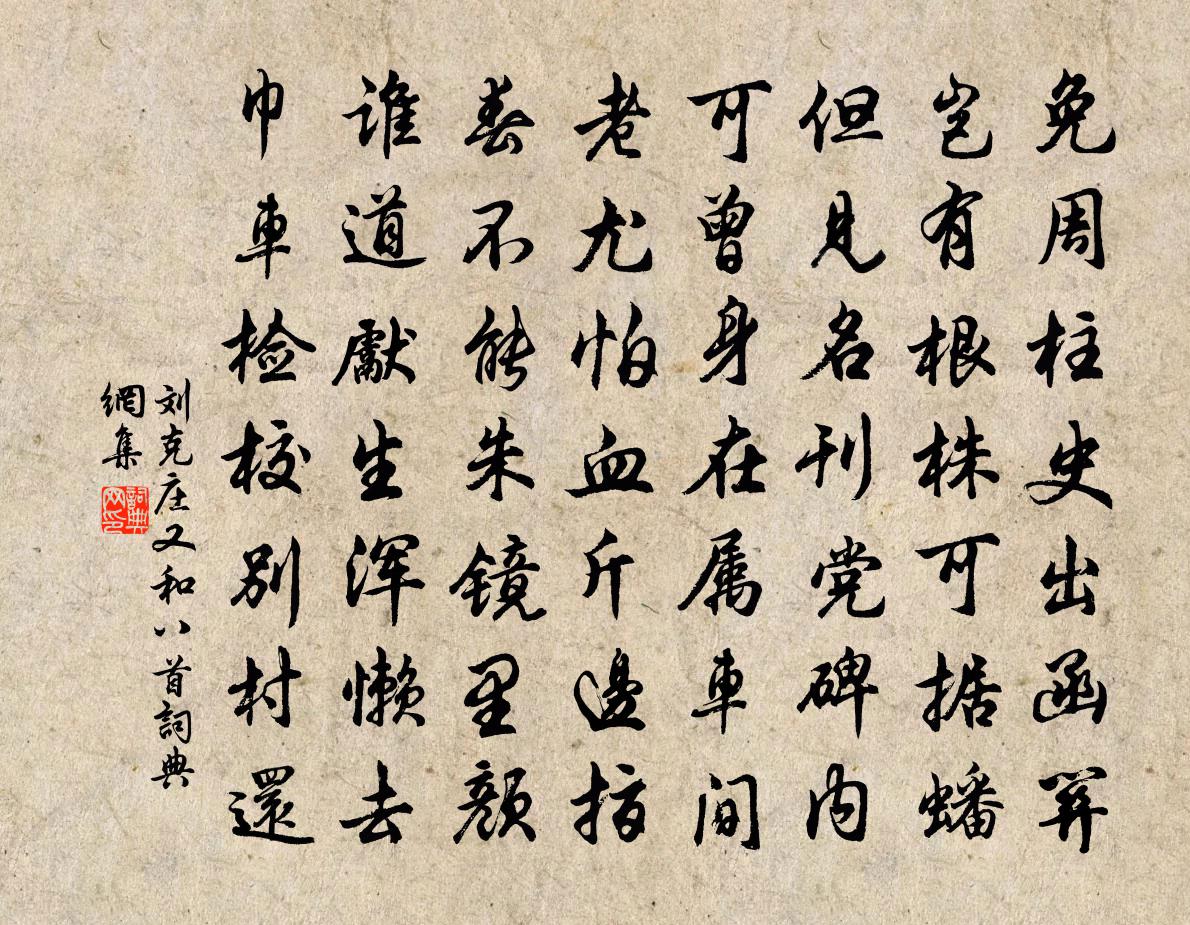 免周柱史出函关
岂有根株可据蟠
但見名刊党碑内
可曾身在属車间
老尤怕血斤邊指
春不能朱镜里颜
谁道獻生浑懒去
巾車检校别村還
刘克庄又和八首詞典
網集
詞典网印